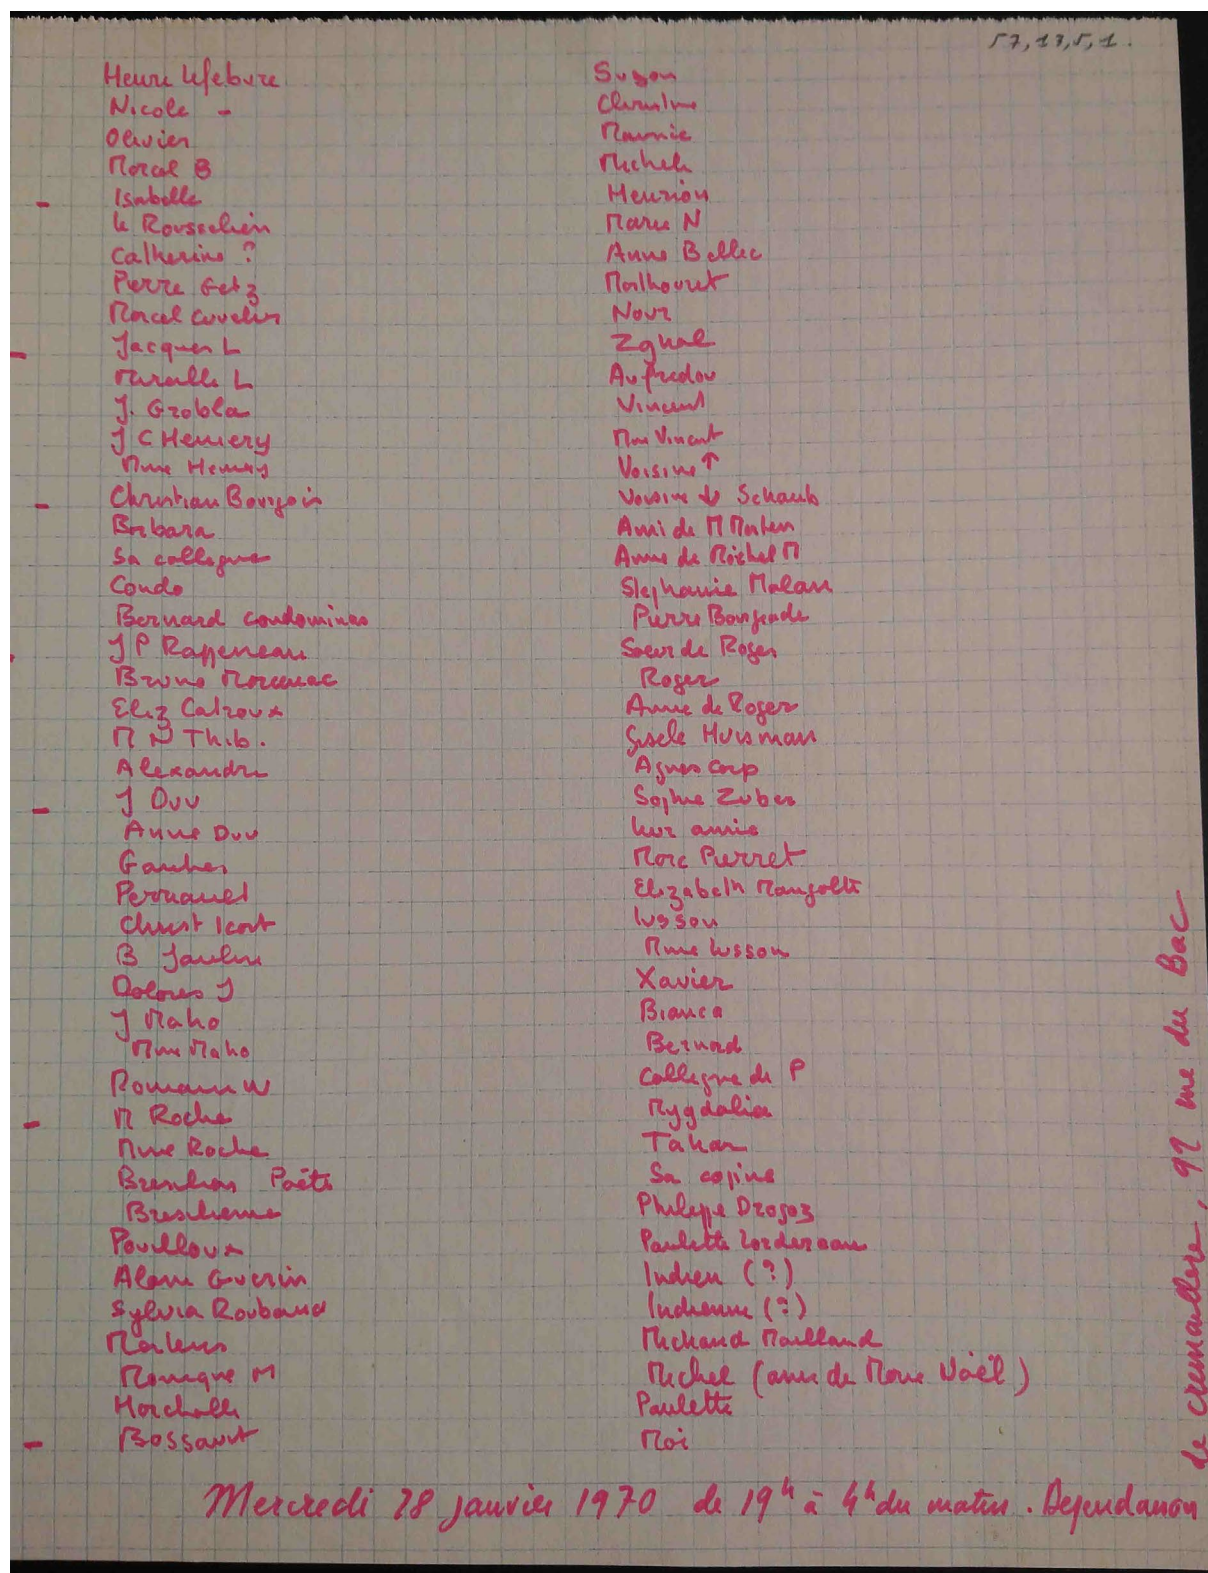 57,13,5,1.
Henri Lefebvre
Nicole -
Olivier
Marcel B
Isabelle
Le Rousselier
Catherine ?
Pierre Getz
Marcel Cuvelier
Jacques L
Mireille L
J. Grobla
J C Hemery
Mme Hemery
Christian Bourgois
Barbara
Sa collegue
Condo
Bernard Condominas
J P Rappeneau
Bruno Marcenac
Eliz Calroux
M N Thib.
Alexandre
J Duv
Anne Duv
Gautier
Perrouaul
Christ Icart
B Jaulin
Dolores J
J Maho
Mme Maho
Romain W
M Roche
Mme Roche
Poète
Pouilloux
Alain Guerin
Sylvia Roubaud
Martens
Monique M
Horcholle
Bossavit
Suzon
Christine
Mamie
Michele
Henrion
Marie N
Anne Bellec
Malhouret
Nour
Zghal
Aufredou
Vincent
Mme Vincent
Voisine ↑
Voisine ↓ Schaub
Ami de M Marten
Amie de Michel M
Stephanie Malan
Pierre Bourgeade
Soeur de Roger
Roger
Amie de Roger
Gisele Huisman
Agnes Carp
Sophie Zuber
leur amie
Marc Pierret
Elizabeth Mangolte
Lusson
Mme Lusson
Xavier
Bianca
Bernard
Collegue de P
Mygdalia
Tahar
Sa copine
Philippe Drogoz
Paulette
Indien (?)
Indienne (?)
Michaud Mailland
Michel (ami de Marie Noël)
Paulette
Moi
Mercredi 28 janvier 1970 de 19h à 4h du matin. Dependaison
de cremaillere, 92 rue du Bac